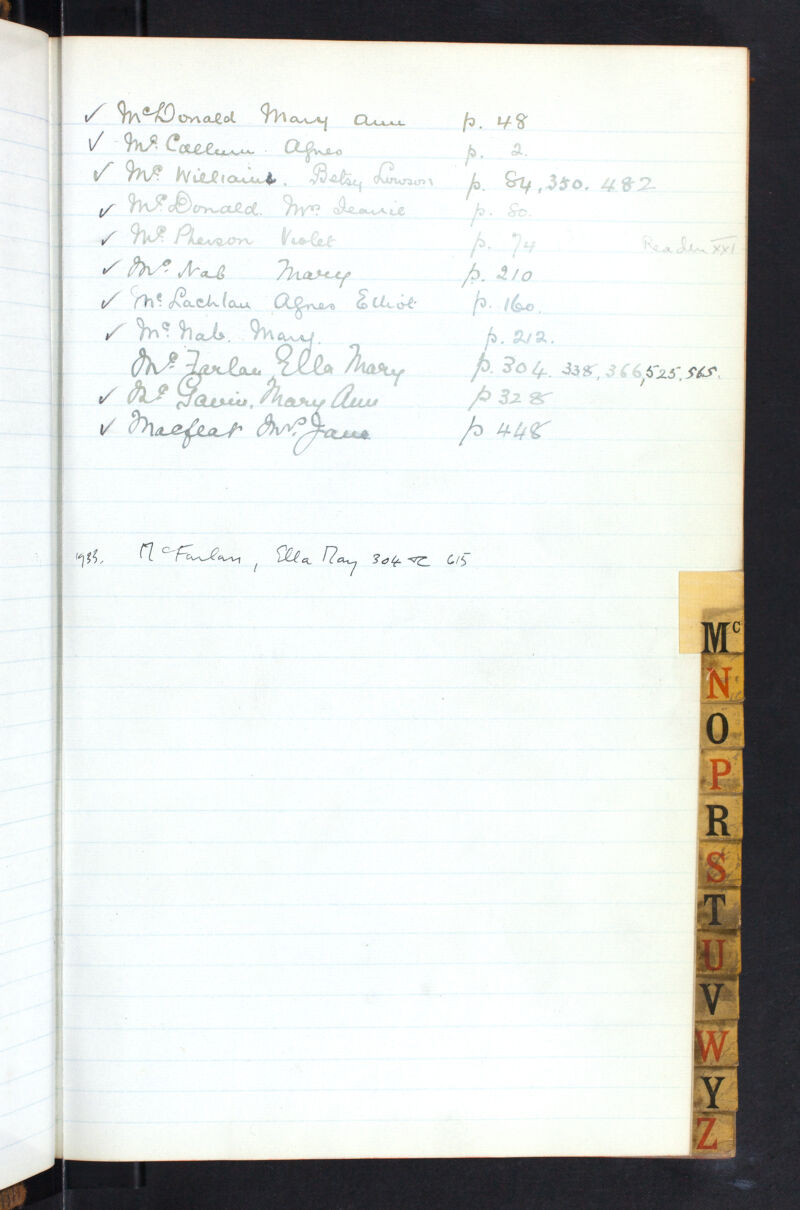 ✓ McDonald Mary Ann p. 48
✓ Mc Callum Agnes p. 2.
✓ Mc Williams. Betsy Lowson p. 84, 350. 482
✓ Mc Donald. Mrs Jeanie p. 80.
✓ Mc Pherson Violet p. 74 Readm XXI
✓ Mc Nab Mary p. 210
✓ Mc Lachlan Agnes Elliot p. 160.
✓ Mc Nab. Mary. p. 212.
Mc Farlan Ella Mary p. 304. 338, 366, 525, 565.
✓ Mc Gavin, Mary Ann p 328
✓ Macfeat Mrs. Jane p 448
1933. McFarlan, Ella May 304 & 615
Mc
N
O
P
R
S
T
U
V
W
Y
Z